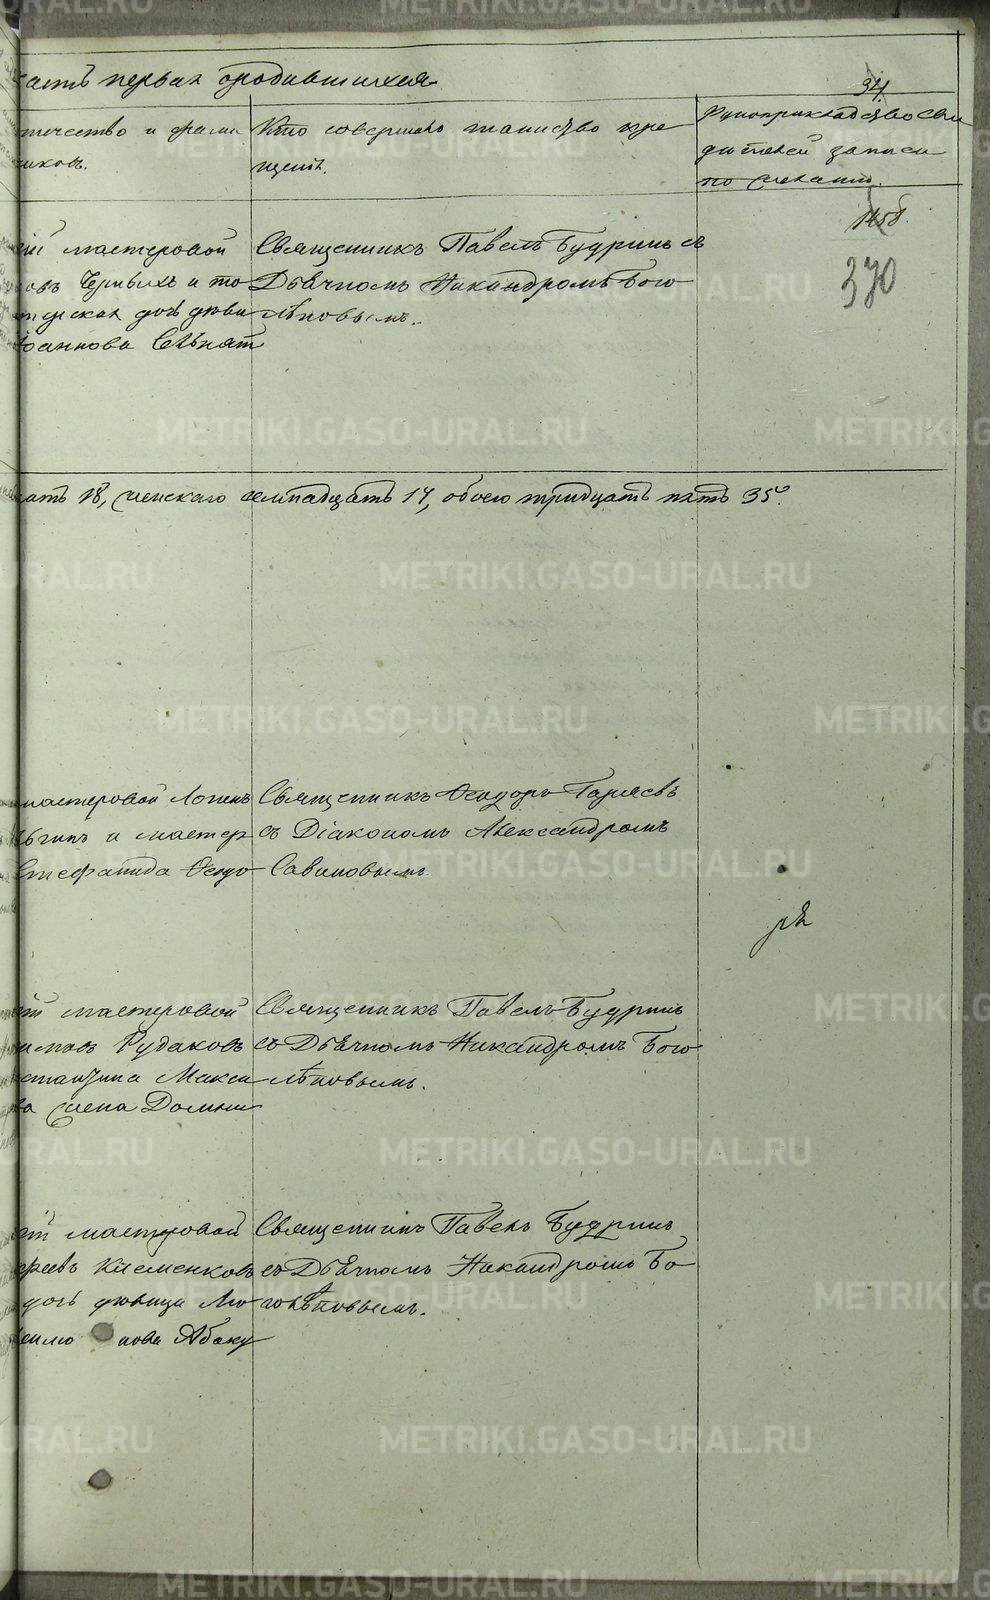 METRIKI.GASO-URAL.RU
асть первая о родившихся
34.
отчество и фами
иковъ.
Кто совершалъ таинство кре
щенія.
Рукоприкладство сви
дѣтелей записи
по желанію.
1458.
370
ій мастеровой
овъ и то
дочь дѣви
Іоаннова
Священникъ Павелъ Будринъ съ
Дьячкомъ Никандромъ Бого
лѣповымъ.
цать 18, женскаго семнадцать 17, обоего тридцать пять 35.
мастеровой Логинъ
и мастер
Стефанида Ѳеодо
Священникъ Ѳеодоръ Гаряевъ
съ Діакономъ Александромъ
Савиновымъ.
ій мастеровой
имовъ Рудаковъ
Макси
ва жена Домни
Священникъ Павелъ Будринъ
съ Дьячкомъ Никандромъ Бого
лѣповымъ.
ій мастеровой
реевъ Клеменковъ
дочь дѣвица
нова Абаку
Священникъ Павелъ Будринъ
съ Дьячкомъ Никандромъ Бо
голѣповымъ.